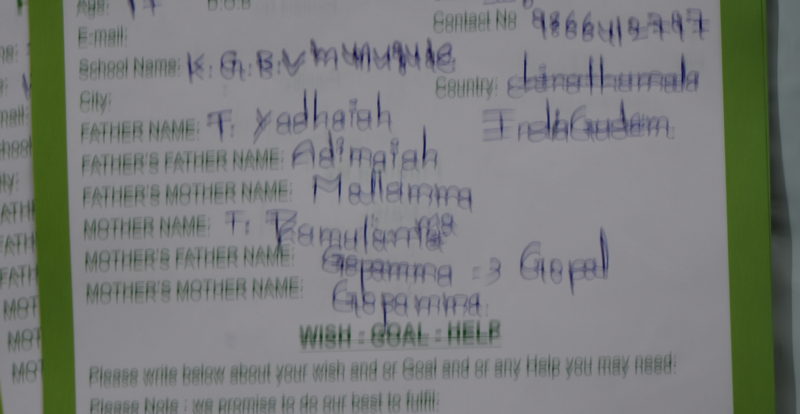 Age: 17 D.O.B
E-mail: Contact No
School Name: K. G. B. V
City: Country:
FATHER NAME: T. Yadhaiah IndhiGudem
FATHER'S FATHER NAME: Adimaiah
FATHER'S MOTHER NAME: Mallamma
MOTHER NAME: T. Ramulamma
MOTHER'S FATHER NAME: Gopamma => Gopal
MOTHER'S MOTHER NAME: Gopamma
WISH : GOAL : HELP
Please write below about your wish and or Goal and or any Help you may need:
Please Note : we promise to do our best to fulfil: